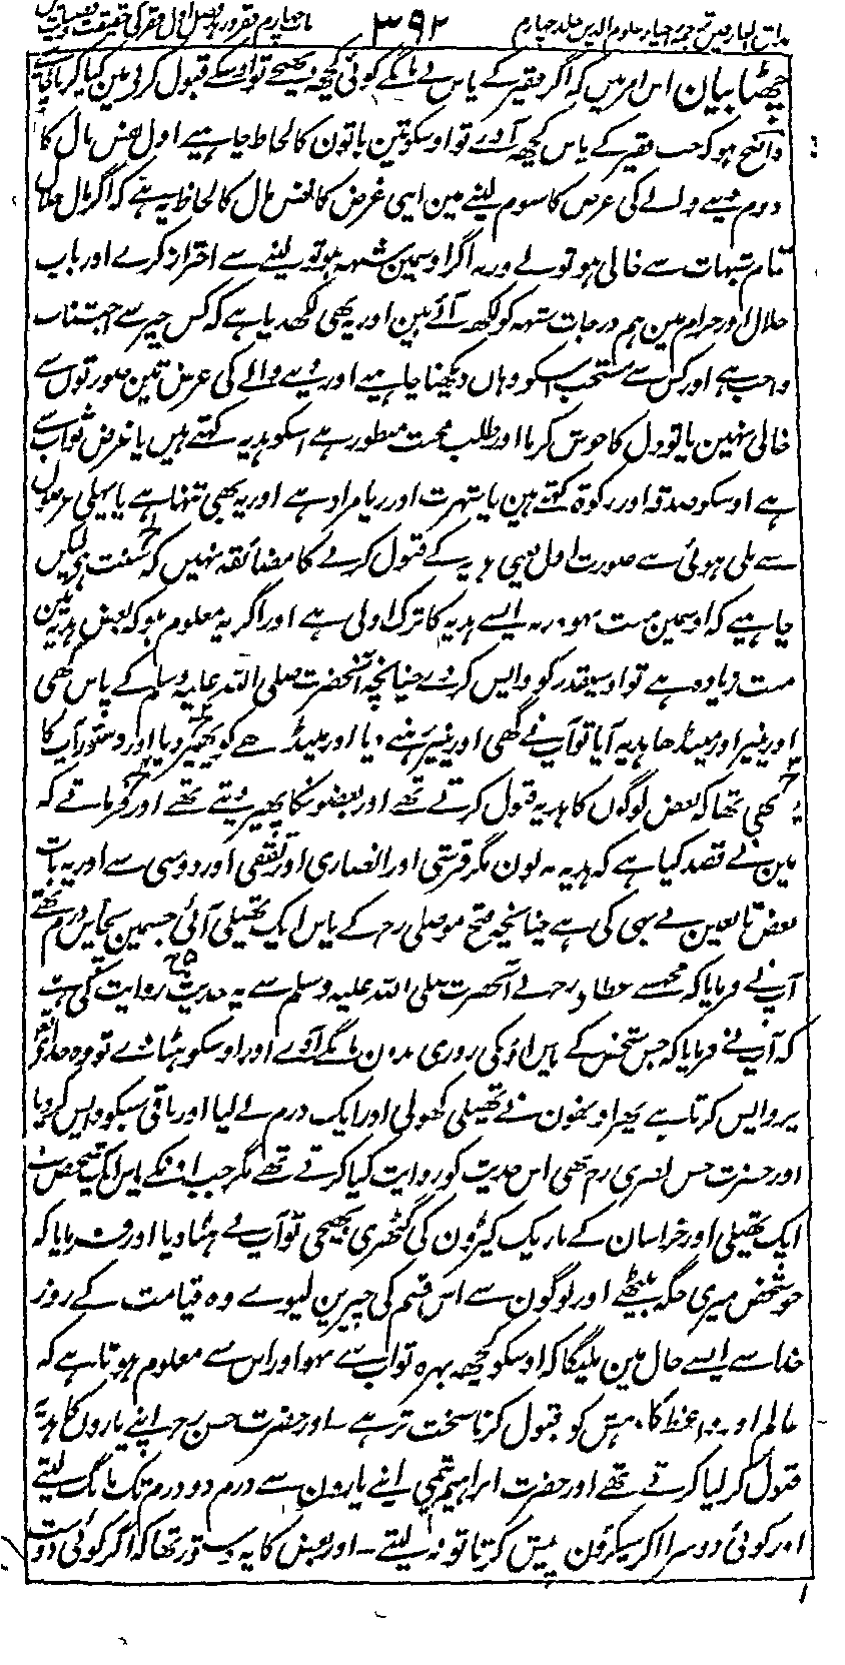 مذاق العارفین ترجمہ احیاء علوم الدین جلد چہارم ۳۹۲ باب چہارم فقر و زہد فصل اول فقر کی حقیقت و فضیلت
چھٹا بیان اس امر میں کہ اگر فقیر کے پاس بے مانگے کوئی کچھ بھیجے تو اوسکے قبول کرنے مین کیا کرنا چاہیے
واضح ہو کہ جب فقیر کے پاس کچھ آوے تو اوسکو تین باتون کا لحاظ چاہیے اول نفس مال کا
دوم دینے والے کی غرض کا سوم لینے مین اپنی غرض کا نفس مال کا لحاظ یہ ہے کہ اگر مال حلال
تمام شبہات سے خالی ہو تو لے ورنہ اگر اوسمین شبہہ ہو تو لینے سے احتراز کرے اور باب
حلال اور حرام مین ہم درجات شبہہ کو لکھ آئے ہین اور یہ بھی لکھدیا ہے کہ کس چیز سے اجتناب
واجب ہے اور کس سے مستحب اسکو وہان دیکھنا چاہیے اور دینے والے کی غرض تین صورتون سے
خالی نہین یا تو دل کا خوش کرنا اور طلب محبت منظور ہے اسکو ہدیہ کہتے ہین یا غرض ثواب سے
ہے اوسکو صدقہ اور زکوۃ کہتے ہین یا شہرت اور ریا مراد ہے اور یہ بھی تنہا ہے یا پہلی غرضون
سے ملی ہوئی ہے صورت اول یعنی ہدیہ کے قبول کرنے کا مضائقہ نہین کہ سنت ہے لیکن
چاہیے کہ اوسمین منت نہو ورنہ ایسے ہدیہ کا ترک اولی ہے اور اگر یہ معلوم ہو کہ بعض ہدیہ مین
منت زیادہ ہے تو اوسیقدر کو واپس کردے چنانچہ آنحضرت صلی اللہ علیہ وسلم کے پاس گھی
اور پنیر اور مینڈھا ہدیہ آیا تو آپ نے گھی اور پنیر رہنے دیا اور مینڈھے کو پھیر دیا اور دستور آپ کا
یہ بھی تھا کہ بعض لوگون کا ہدیہ قبول کرتے تھے اور بعضونکا پھیر دیتے تھے اور فرماتے کہ
مین نے قصد کیا ہے کہ ہدیہ نہ لون مگر قرشی اور انصاری اور ثقفی اور دوسی سے اور یہ بات
بعض تابعین نے بھی کی ہے چنانچہ فتح موصلی رح کے پاس ایک تھیلی آئی جسمین پچاس درم تھے
آپ نے فرمایا کہ مجھسے عطا رح نے آنحضرت صلی اللہ علیہ وسلم سے یہ حدیث روایت کی ہے
کہ آپ نے فرمایا کہ جس شخص کے پاس اوسکی روزی بدون مانگے آوے اور اوسکو ہٹا دے تو وہ خدا تعالیٰ
پر واپس کرتا ہے پھر اونھون نے تھیلی کھولی اور ایک درم لے لیا اور باقی سبکو واپس کردیا
اور حضرت حسن بصری رح بھی اس حدیث کو روایت کیا کرتے تھے مگر جب اونکے پاس ایک شخص نے
ایک تھیلی اور خراسان کے باریک کپڑون کی گٹھری بھیجی تو آپ نے ہٹا دیا اور فرمایا کہ
جو شخص میری جگہ بیٹھے اور لوگون سے اس قسم کی چیزین لیوے وہ قیامت کے روز
خدا سے ایسے حال مین ملیگا کہ اوسکو کچھ بہرہ ثواب سے نہو اور اس سے معلوم ہوتا ہے کہ
عالم اور واعظ کا دہش کو قبول کرنا سخت تر ہے - اور حضرت حسن رح اپنے یارون کا ہدیہ
قبول کر لیا کرتے تھے اور حضرت ابراہیم تیمی اپنے یارون سے درم دو درم تک مانگ لیتے
اور کوئی دوسرا اگر سیکڑون پیش کرتا تو نہ لیتے - اور بعض کا یہ دستور تھا کہ اگر کوئی دوست